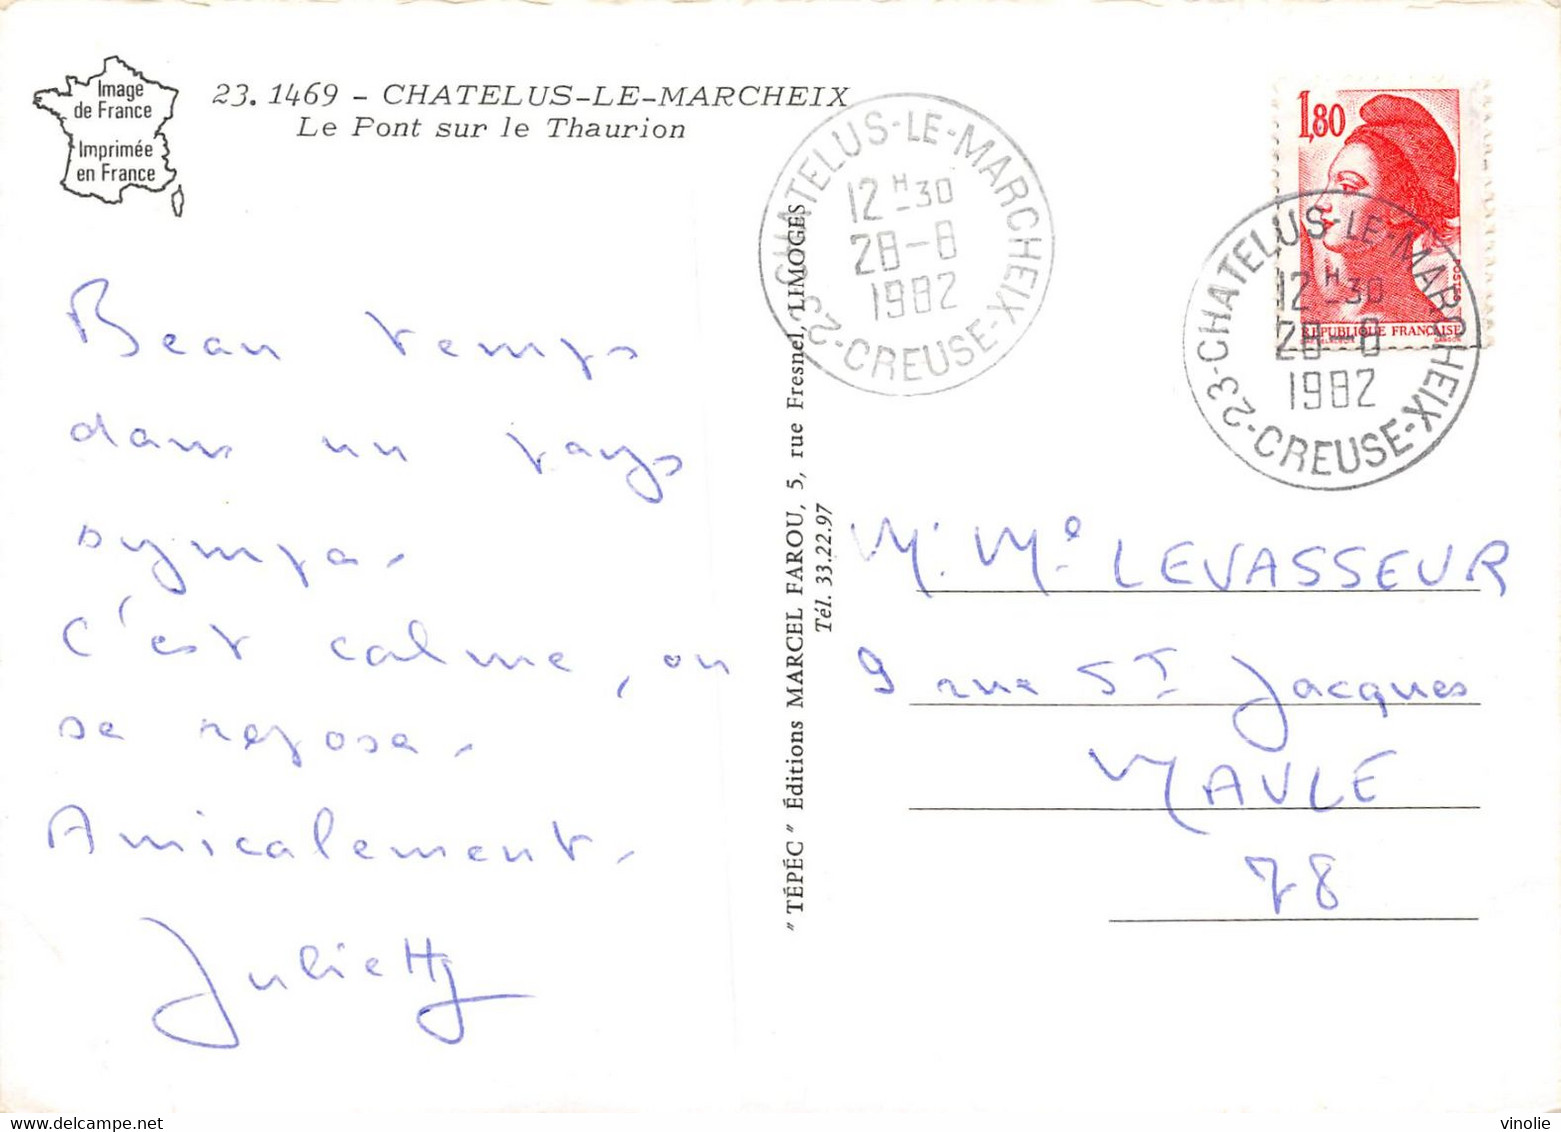 Image
de France
Imprimée
en France
23. 1469 - CHATELUS-LE-MARCHEIX
Le Pont sur le Thaurion
Beau temps
dans un pays
sympa.
C'est calme, on
se repose.
Amicalement.
"TÉPÉC" Éditions MARCEL FAROU, 5, rue Fresnel, LIMOGES
Tél. 33.22.97
23-CHATELUS-LE-MARCHEIX-CREUSE-
12H30
28-8
1982
1,80
POSTES
REPUBLIQUE FRANÇAISE
GANDON
23-CHATELUS-LE-MARCHEIX-CREUSE-
12H30
28-8
1982
Mr. Me LEVASSEUR
9 rue ST Jacques
MAULE
78
vinolie